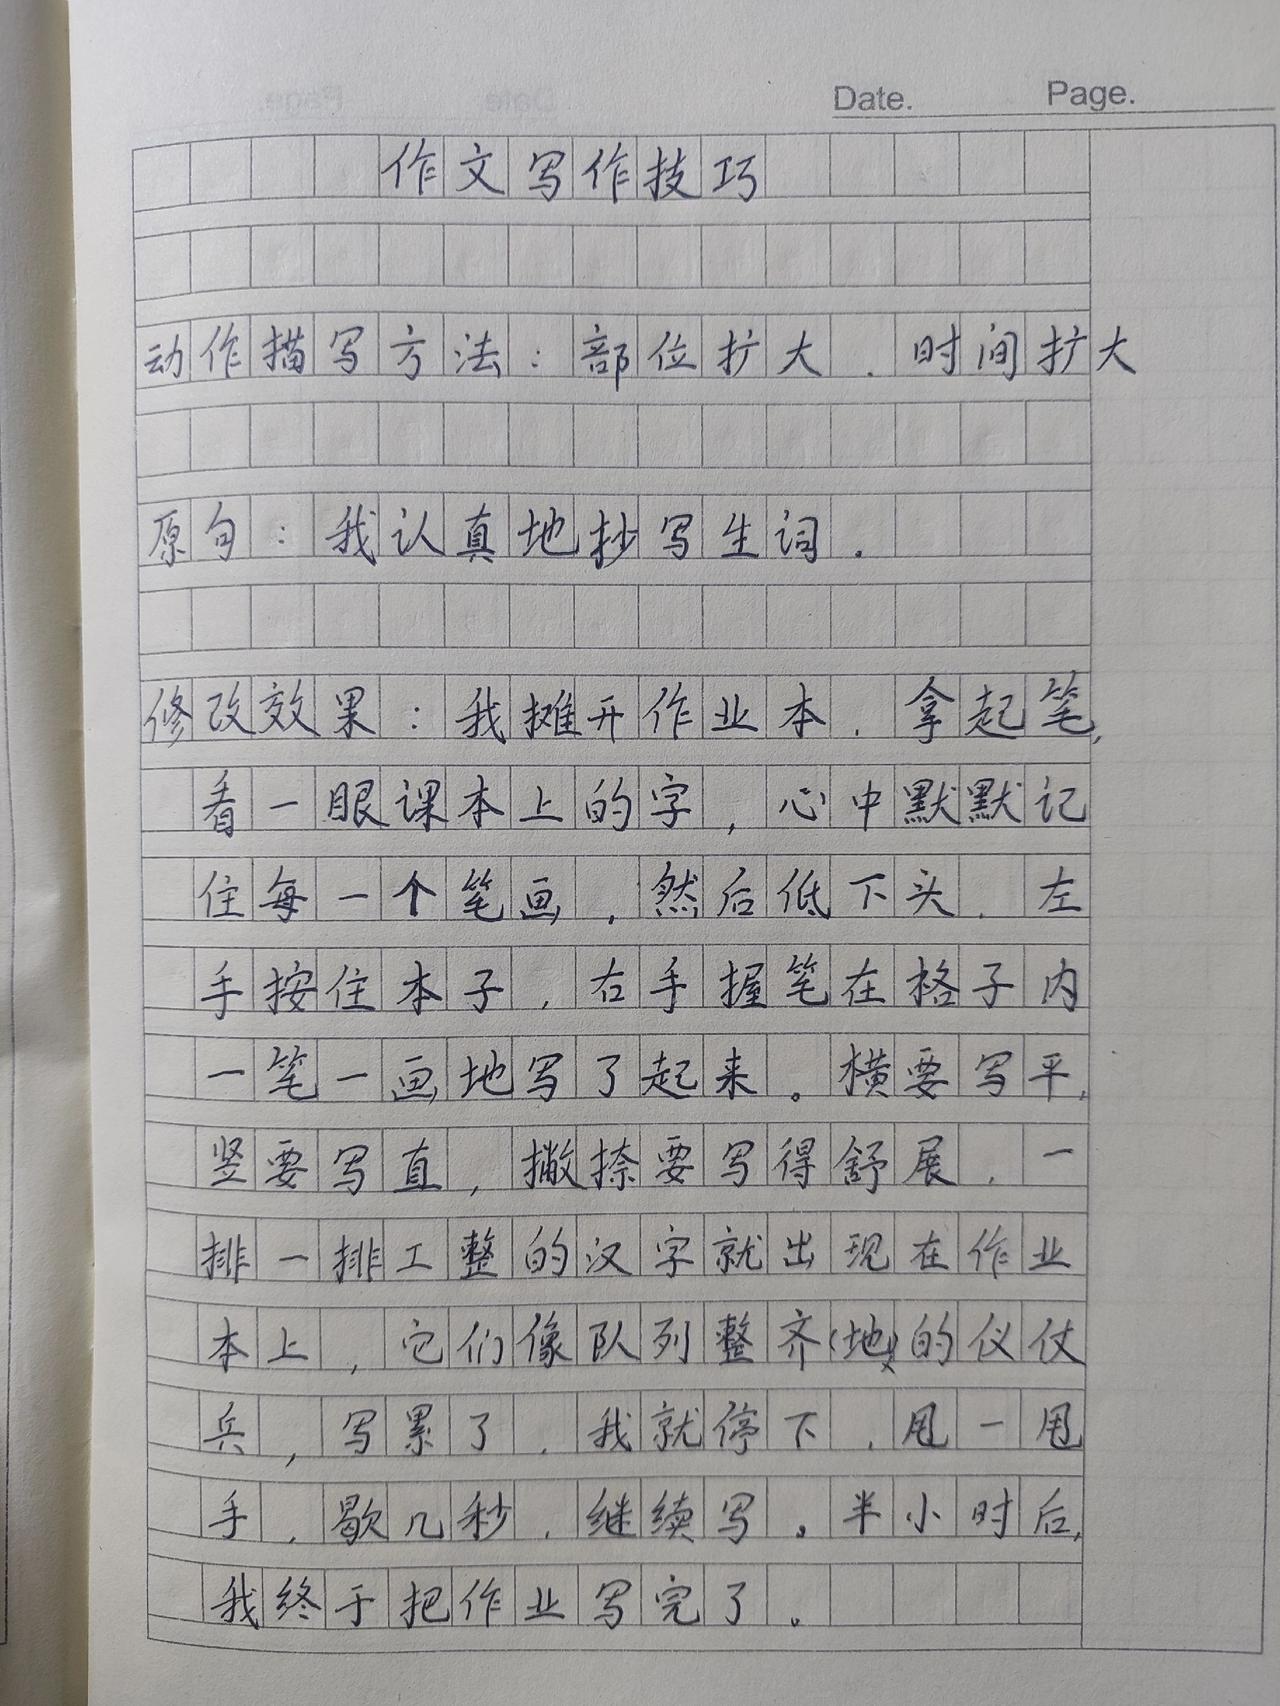 Date. Page.
作文写作技巧
动作描写方法：部位扩大，时间扩大
原句：我认真地抄写生词.
修改效果：我摊开作业本，拿起笔，
看一眼课本上的字，心中默默记
住每一个笔画，然后低下头，左
手按住本子，右手握笔在格子内
一笔一画地写了起来。横要写平，
竖要写直，撇捺要写得舒展，一
排一排工整的汉字就出现在作业
本上，它们像队列整齐(地)的仪仗
兵，写累了，我就停下，甩一甩
手，歇几秒，继续写。半小时后，
我终于把作业写完了。